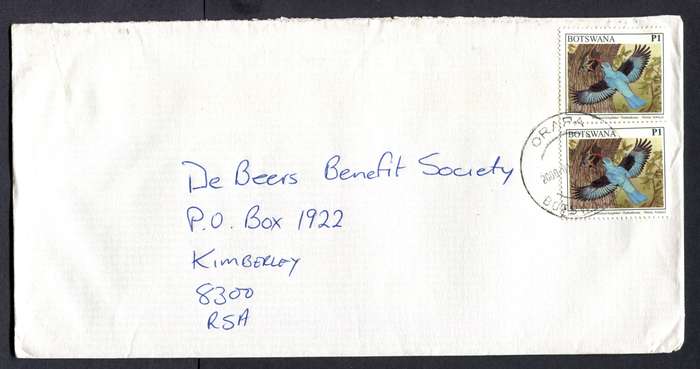 BOTSWANA P1
BOTSWANA P1
ORAPA
De Beers Benefit Society
P.O. Box 1922
KIMBERLEY
8300
RSA